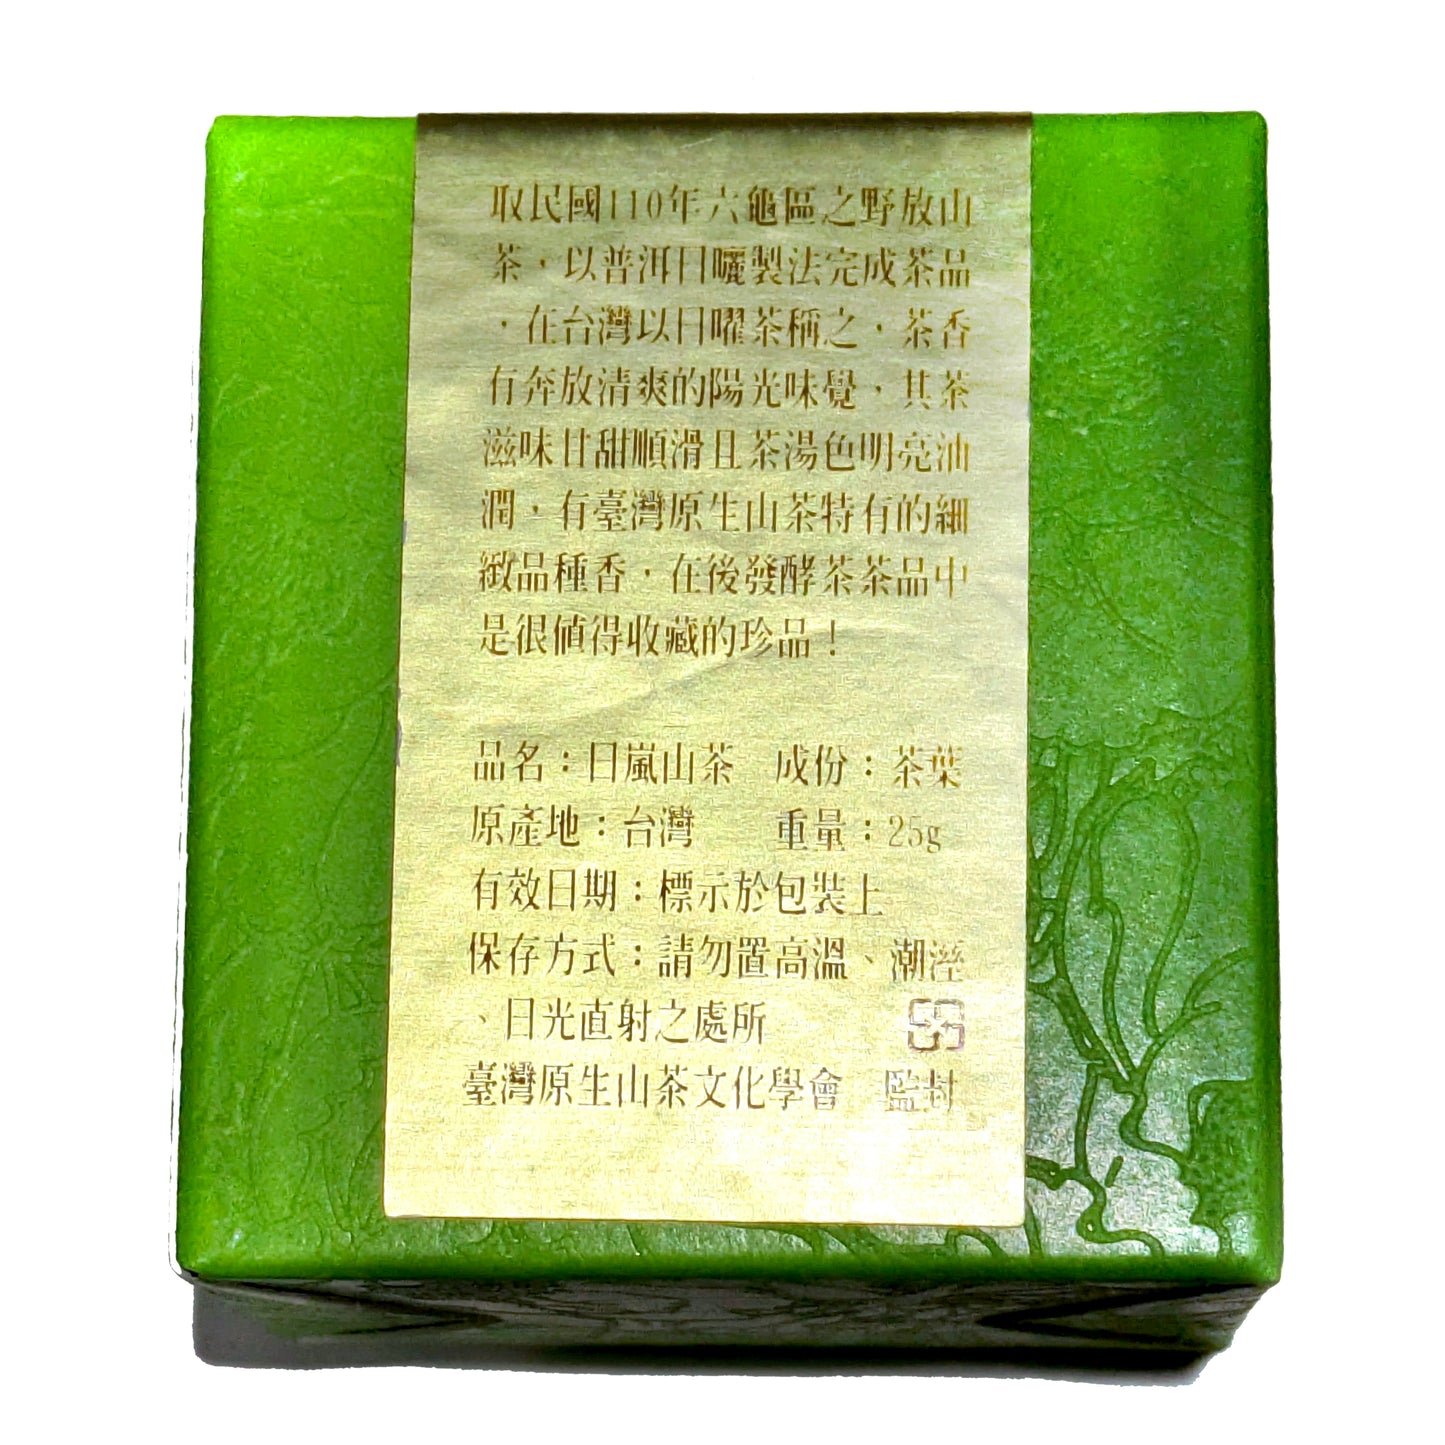 取民國110年六龜區之野放山
茶，以普洱日曬製法完成茶品
，在台灣以日曜茶稱之，茶香
有奔放清爽的陽光味覺，其茶
滋味甘甜順滑且茶湯色明亮油
潤，有臺灣原生山茶特有的細
緻品種香，在後發酵茶茶品中
是很值得收藏的珍品！
品名：日嵐山茶　成份：茶葉
原產地：台灣　重量：25g
有效日期：標示於包裝上
保存方式：請勿置高溫、潮溼
、日光直射之處所
臺灣原生山茶文化學會　監封